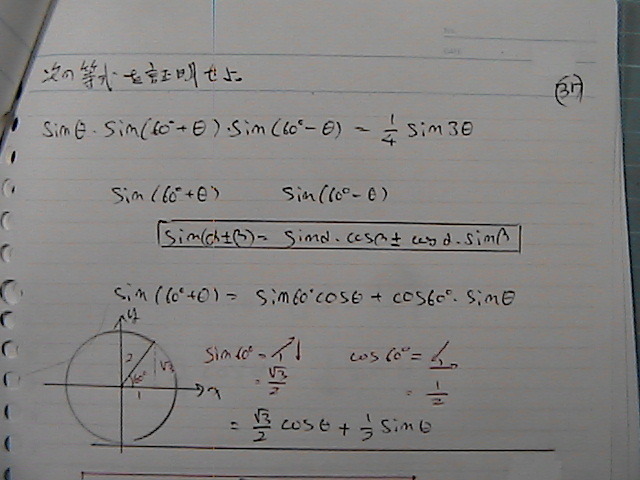 次の等式を証明せよ。
(37)
sinθ・sin(60°+θ)・sin(60°-θ) = 1/4 sin3θ
sin(60°+θ) sin(60°-θ)
sin(α±β) = sinα・cosβ ± cosα・sinβ
sin(60°+θ) = sin60°cosθ + cos60°・sinθ
y
2 √3
60°
1 x
sin60° = cos60° =
= √3/2 = 1/2
= √3/2 cosθ + 1/2 sinθ